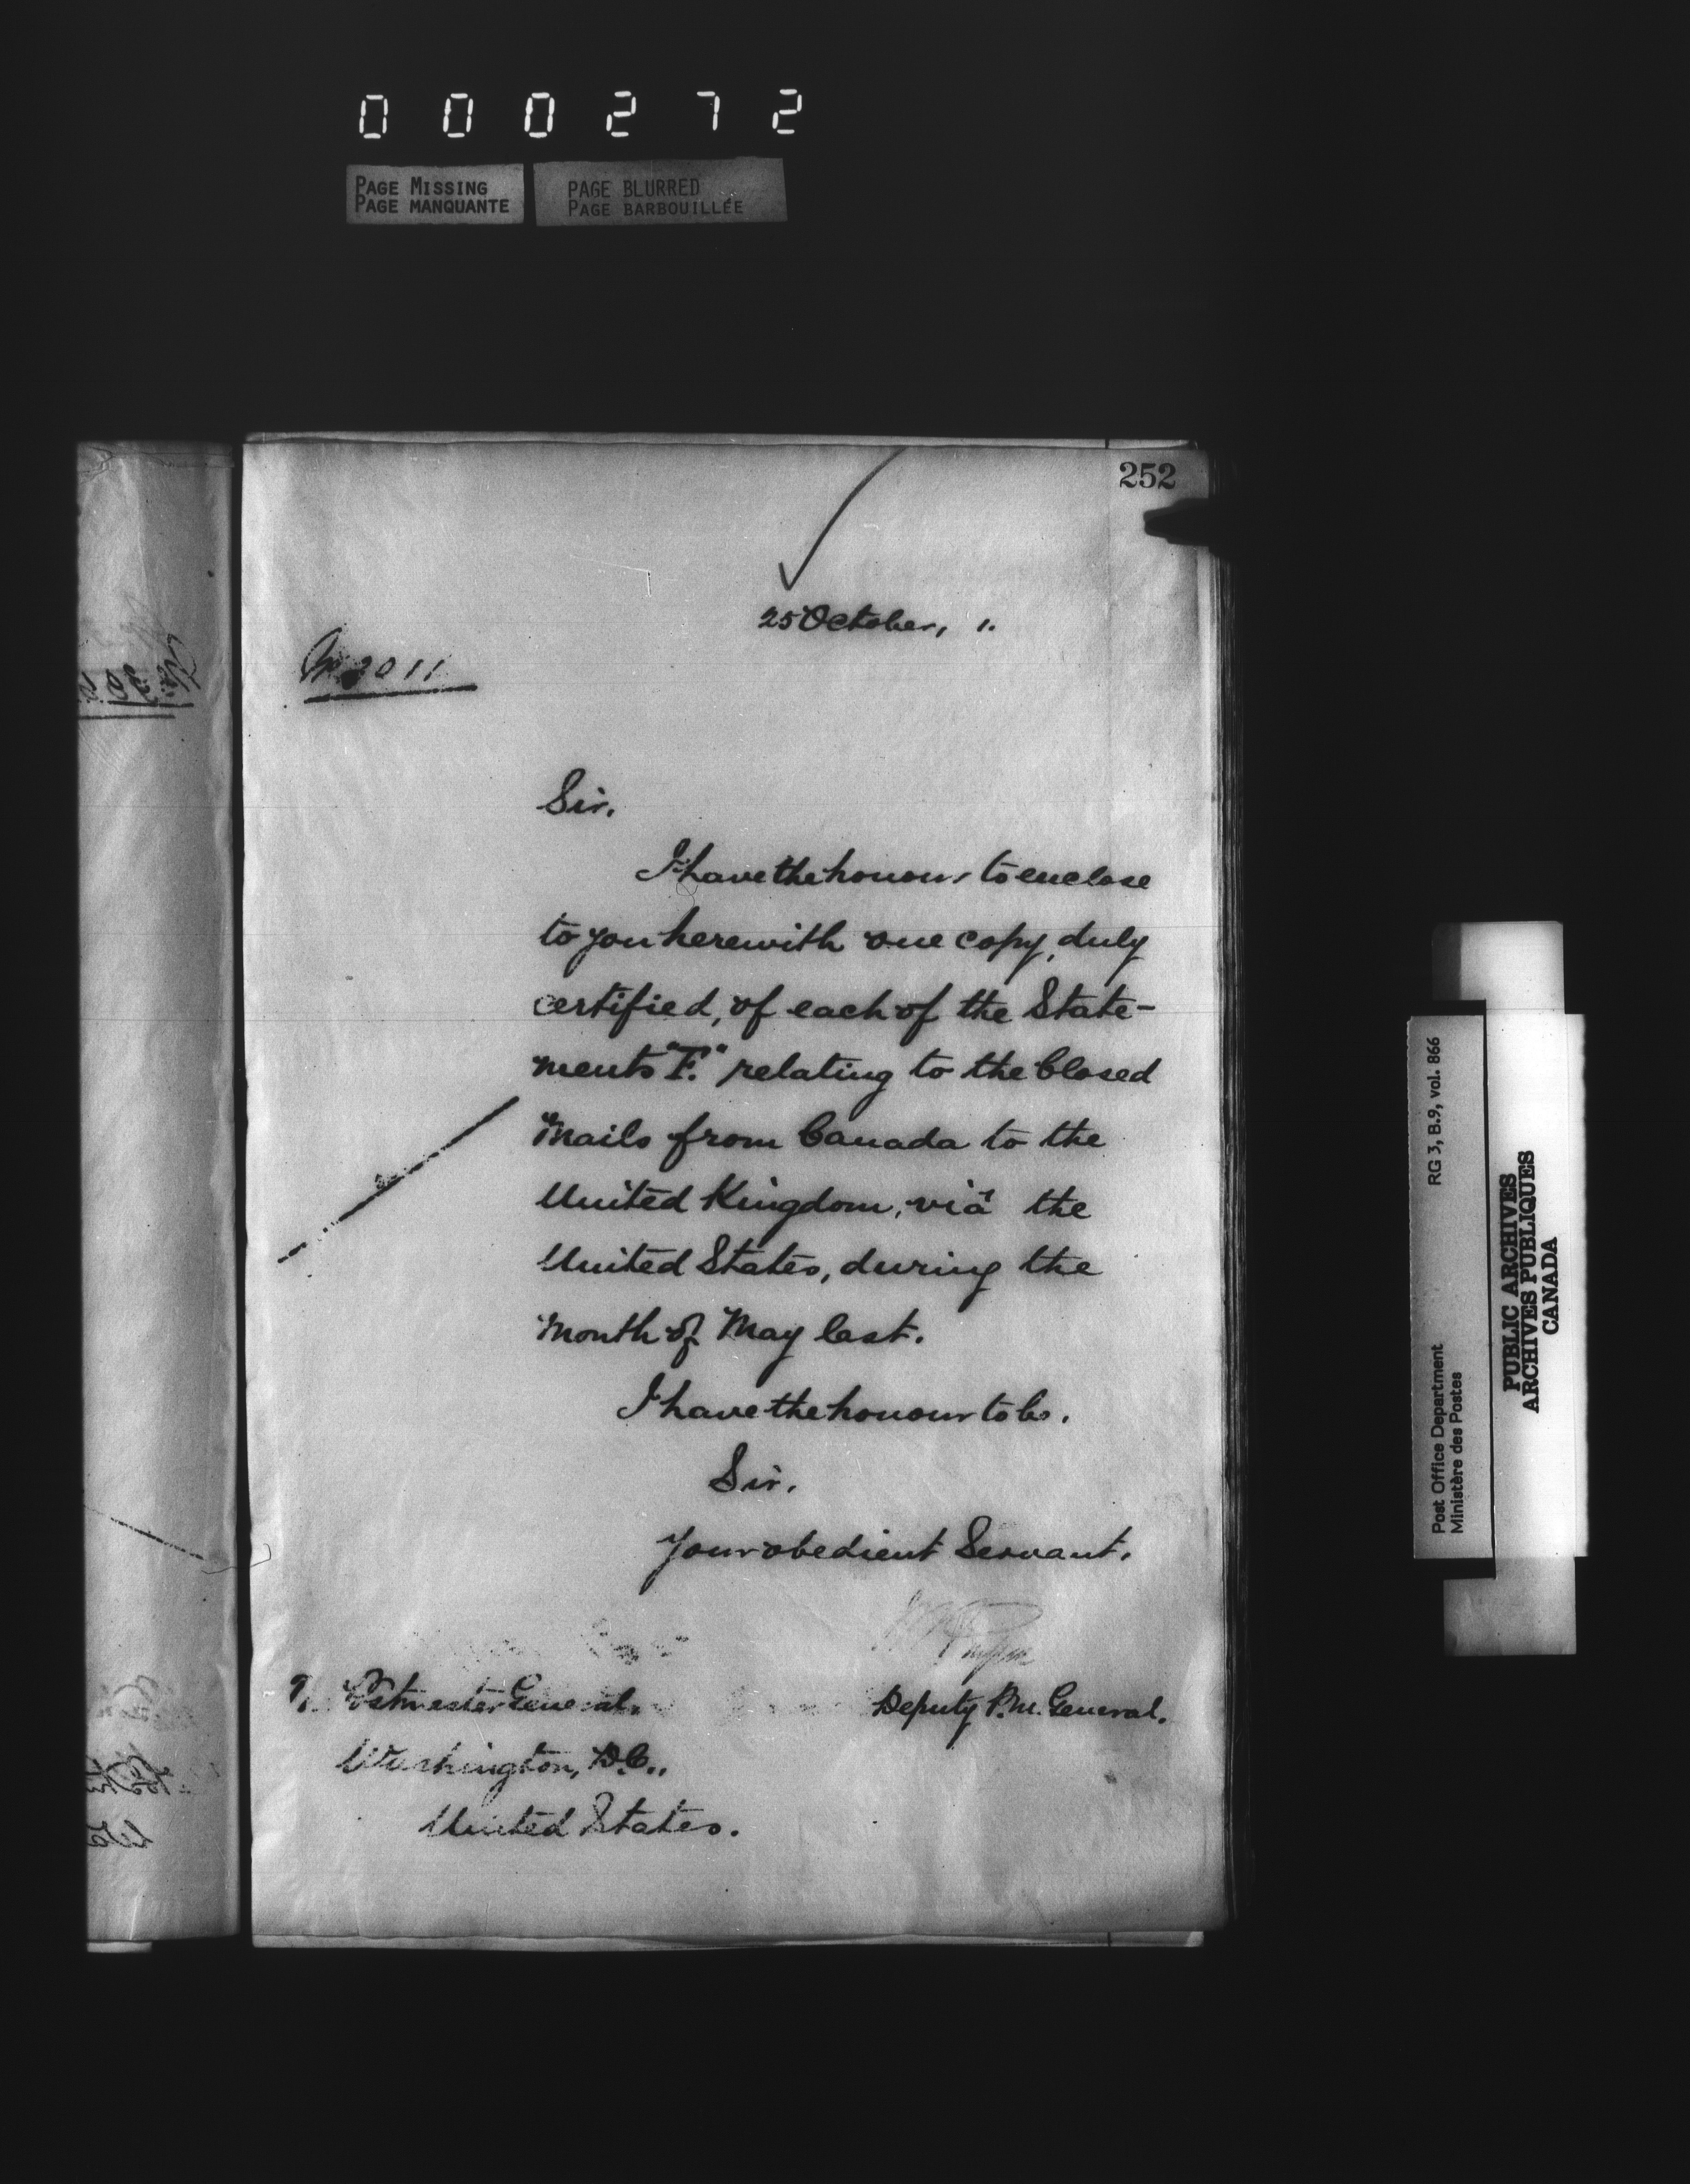 000272
PAGE MISSING
PAGE MANQUANTE
PAGE BLURRED
PAGE BARBOUILLÉE
252
25 October, 1.
2011
Sir,
I have the honour to enclose
to you herewith one copy, duly
certified, of each of the State-
ments "F." relating to the Closed
Mails from Canada to the
United Kingdom, viâ the
United States, during the
month of May last.
I have the honour to be.
Sir,
Your obedient Servant.
Deputy P.M. General.
Postmaster General.
Washington, D.C.,
United States.
Post Office Department
Ministère des Postes
RG 3, B.9, vol. 866
PUBLIC ARCHIVES
ARCHIVES PUBLIQUES
CANADA